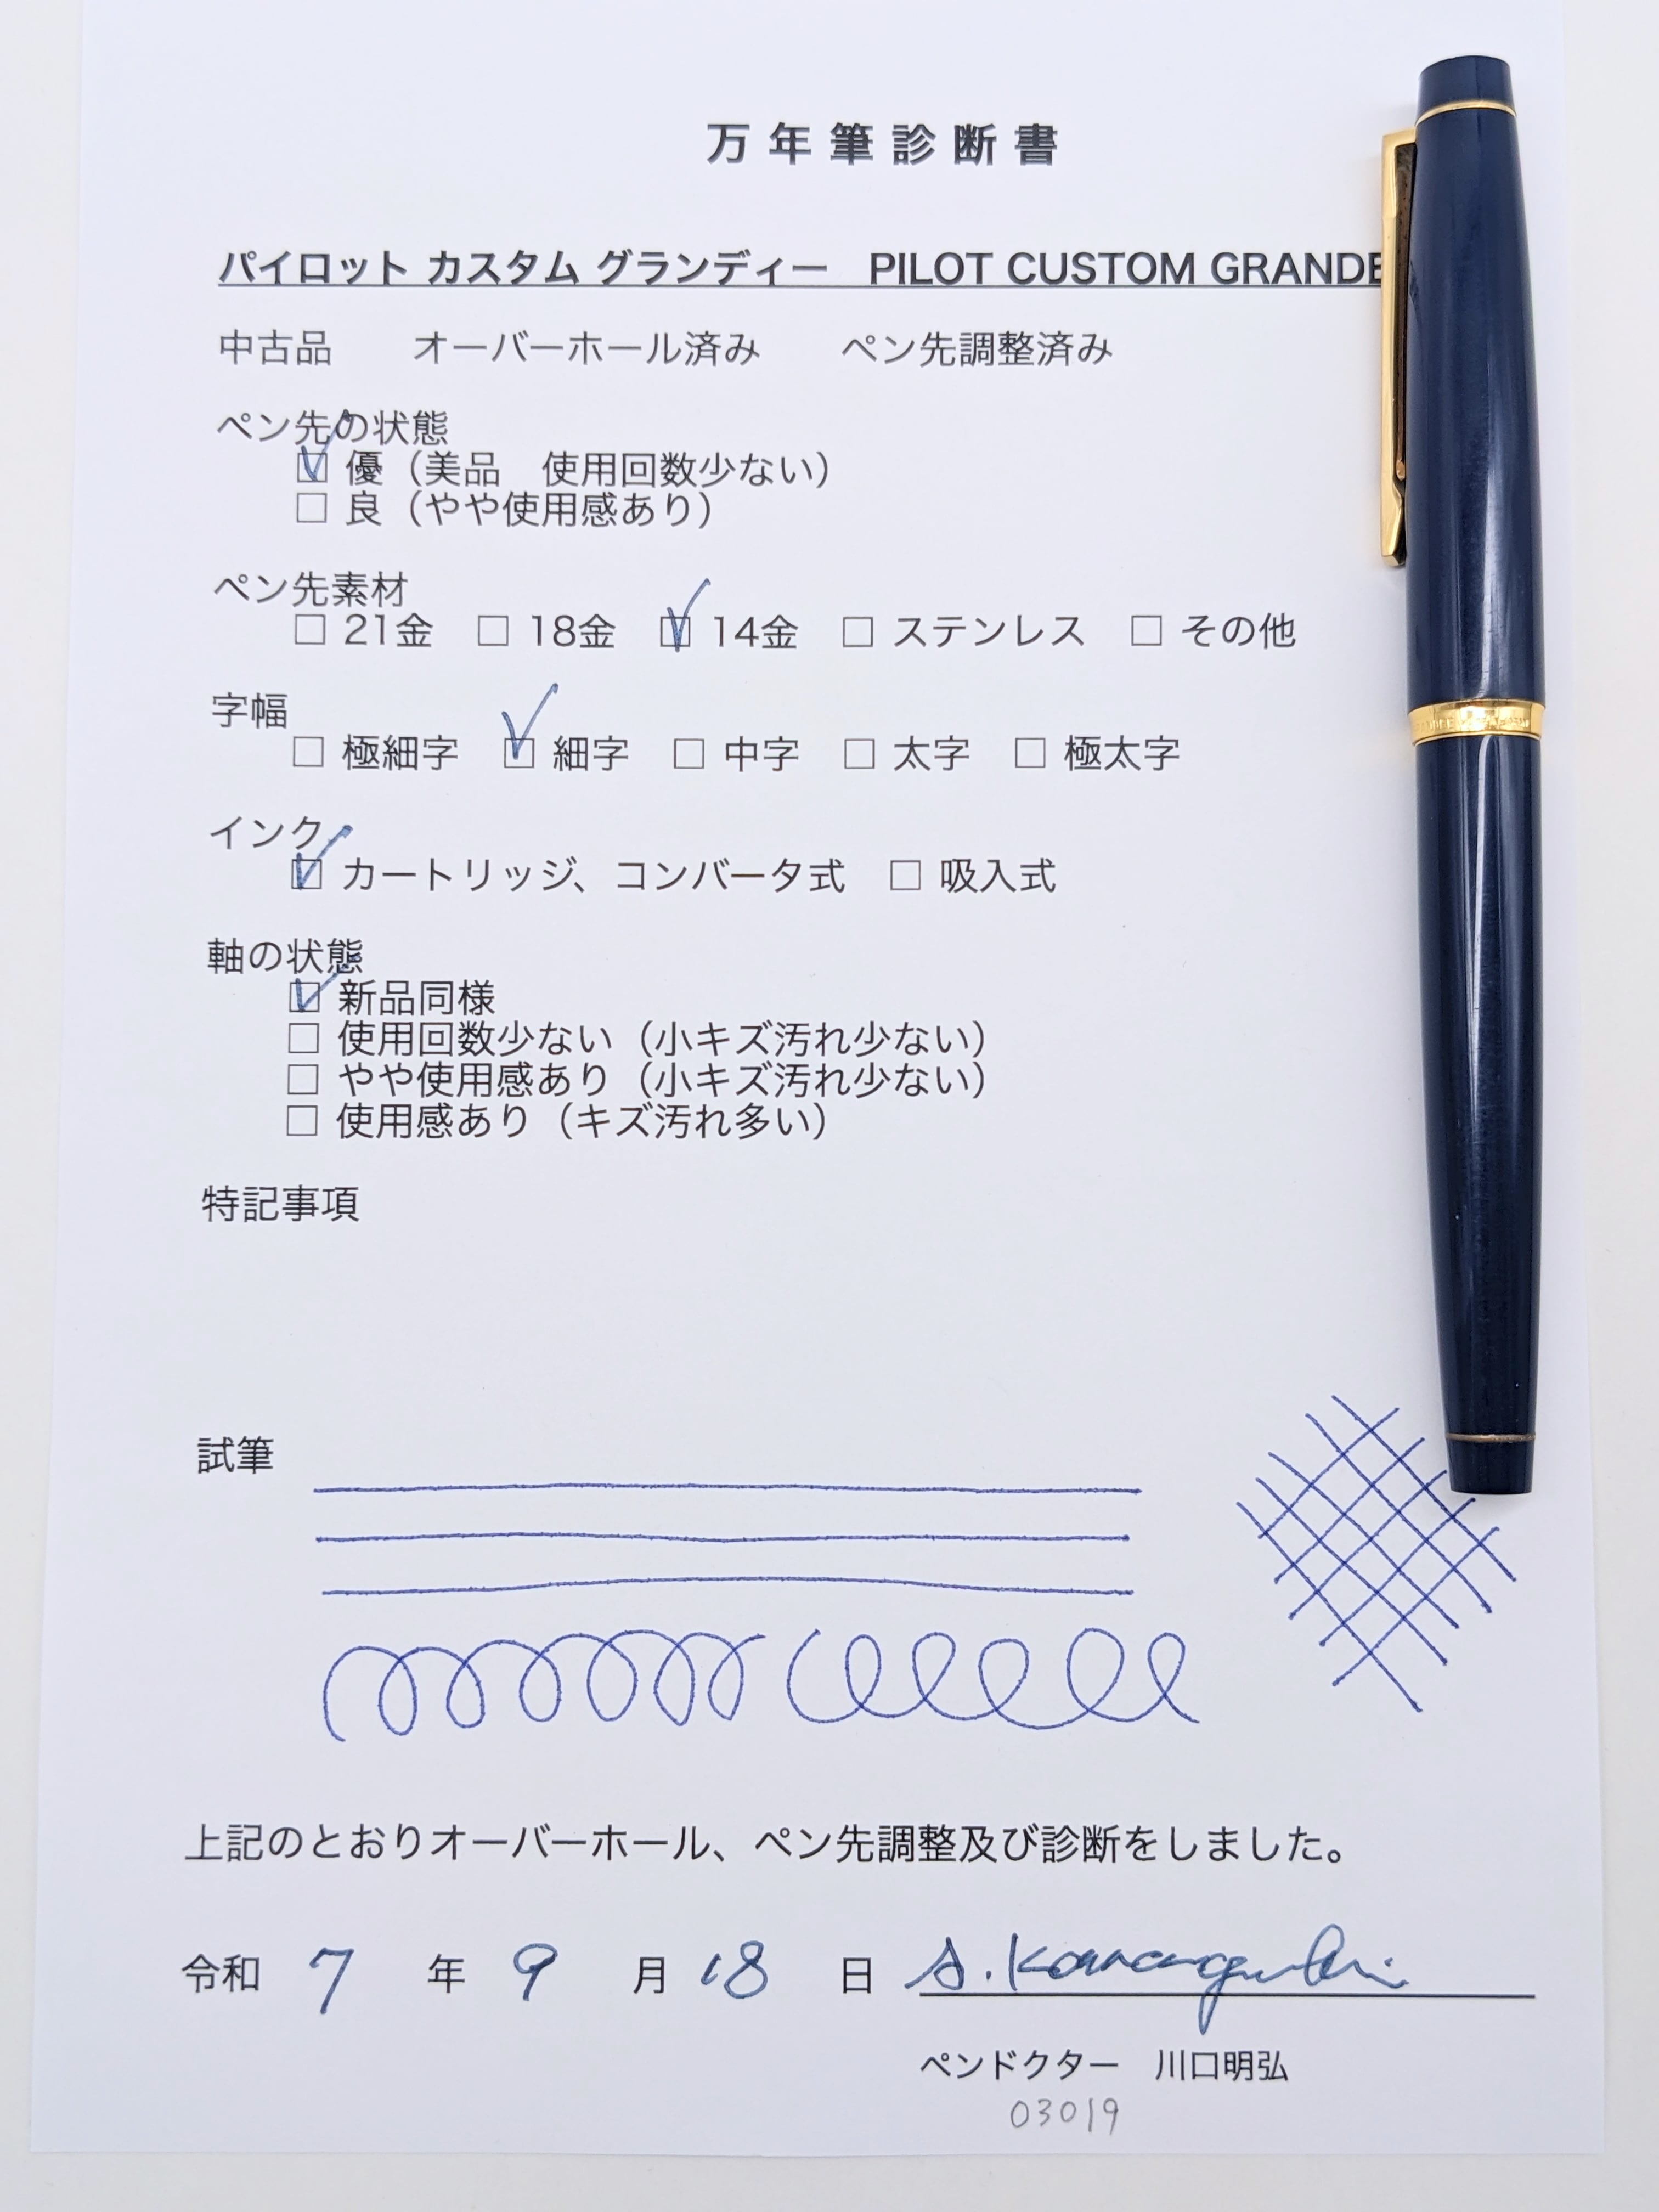 万年筆診断書
パイロット カスタム グランディー PILOT CUSTOM GRANDE
中古品 オーバーホール済み ペン先調整済み
ペン先の状態
☑ 優（美品 使用回数少ない）
□ 良（やや使用感あり）
ペン先素材
□ 21金 □ 18金 ☑ 14金 □ ステンレス □ その他
字幅
□ 極細字 ☑ 細字 □ 中字 □ 太字 □ 極太字
インク
☑ カートリッジ、コンバータ式 □ 吸入式
軸の状態
☑ 新品同様
□ 使用回数少ない（小キズ汚れ少ない）
□ やや使用感あり（小キズ汚れ少ない）
□ 使用感あり（キズ汚れ多い）
特記事項
試筆
上記のとおりオーバーホール、ペン先調整及び診断をしました。
令和 7 年 9 月 18 日 A. Kawaguchi
ペンドクター 川口明弘
03019